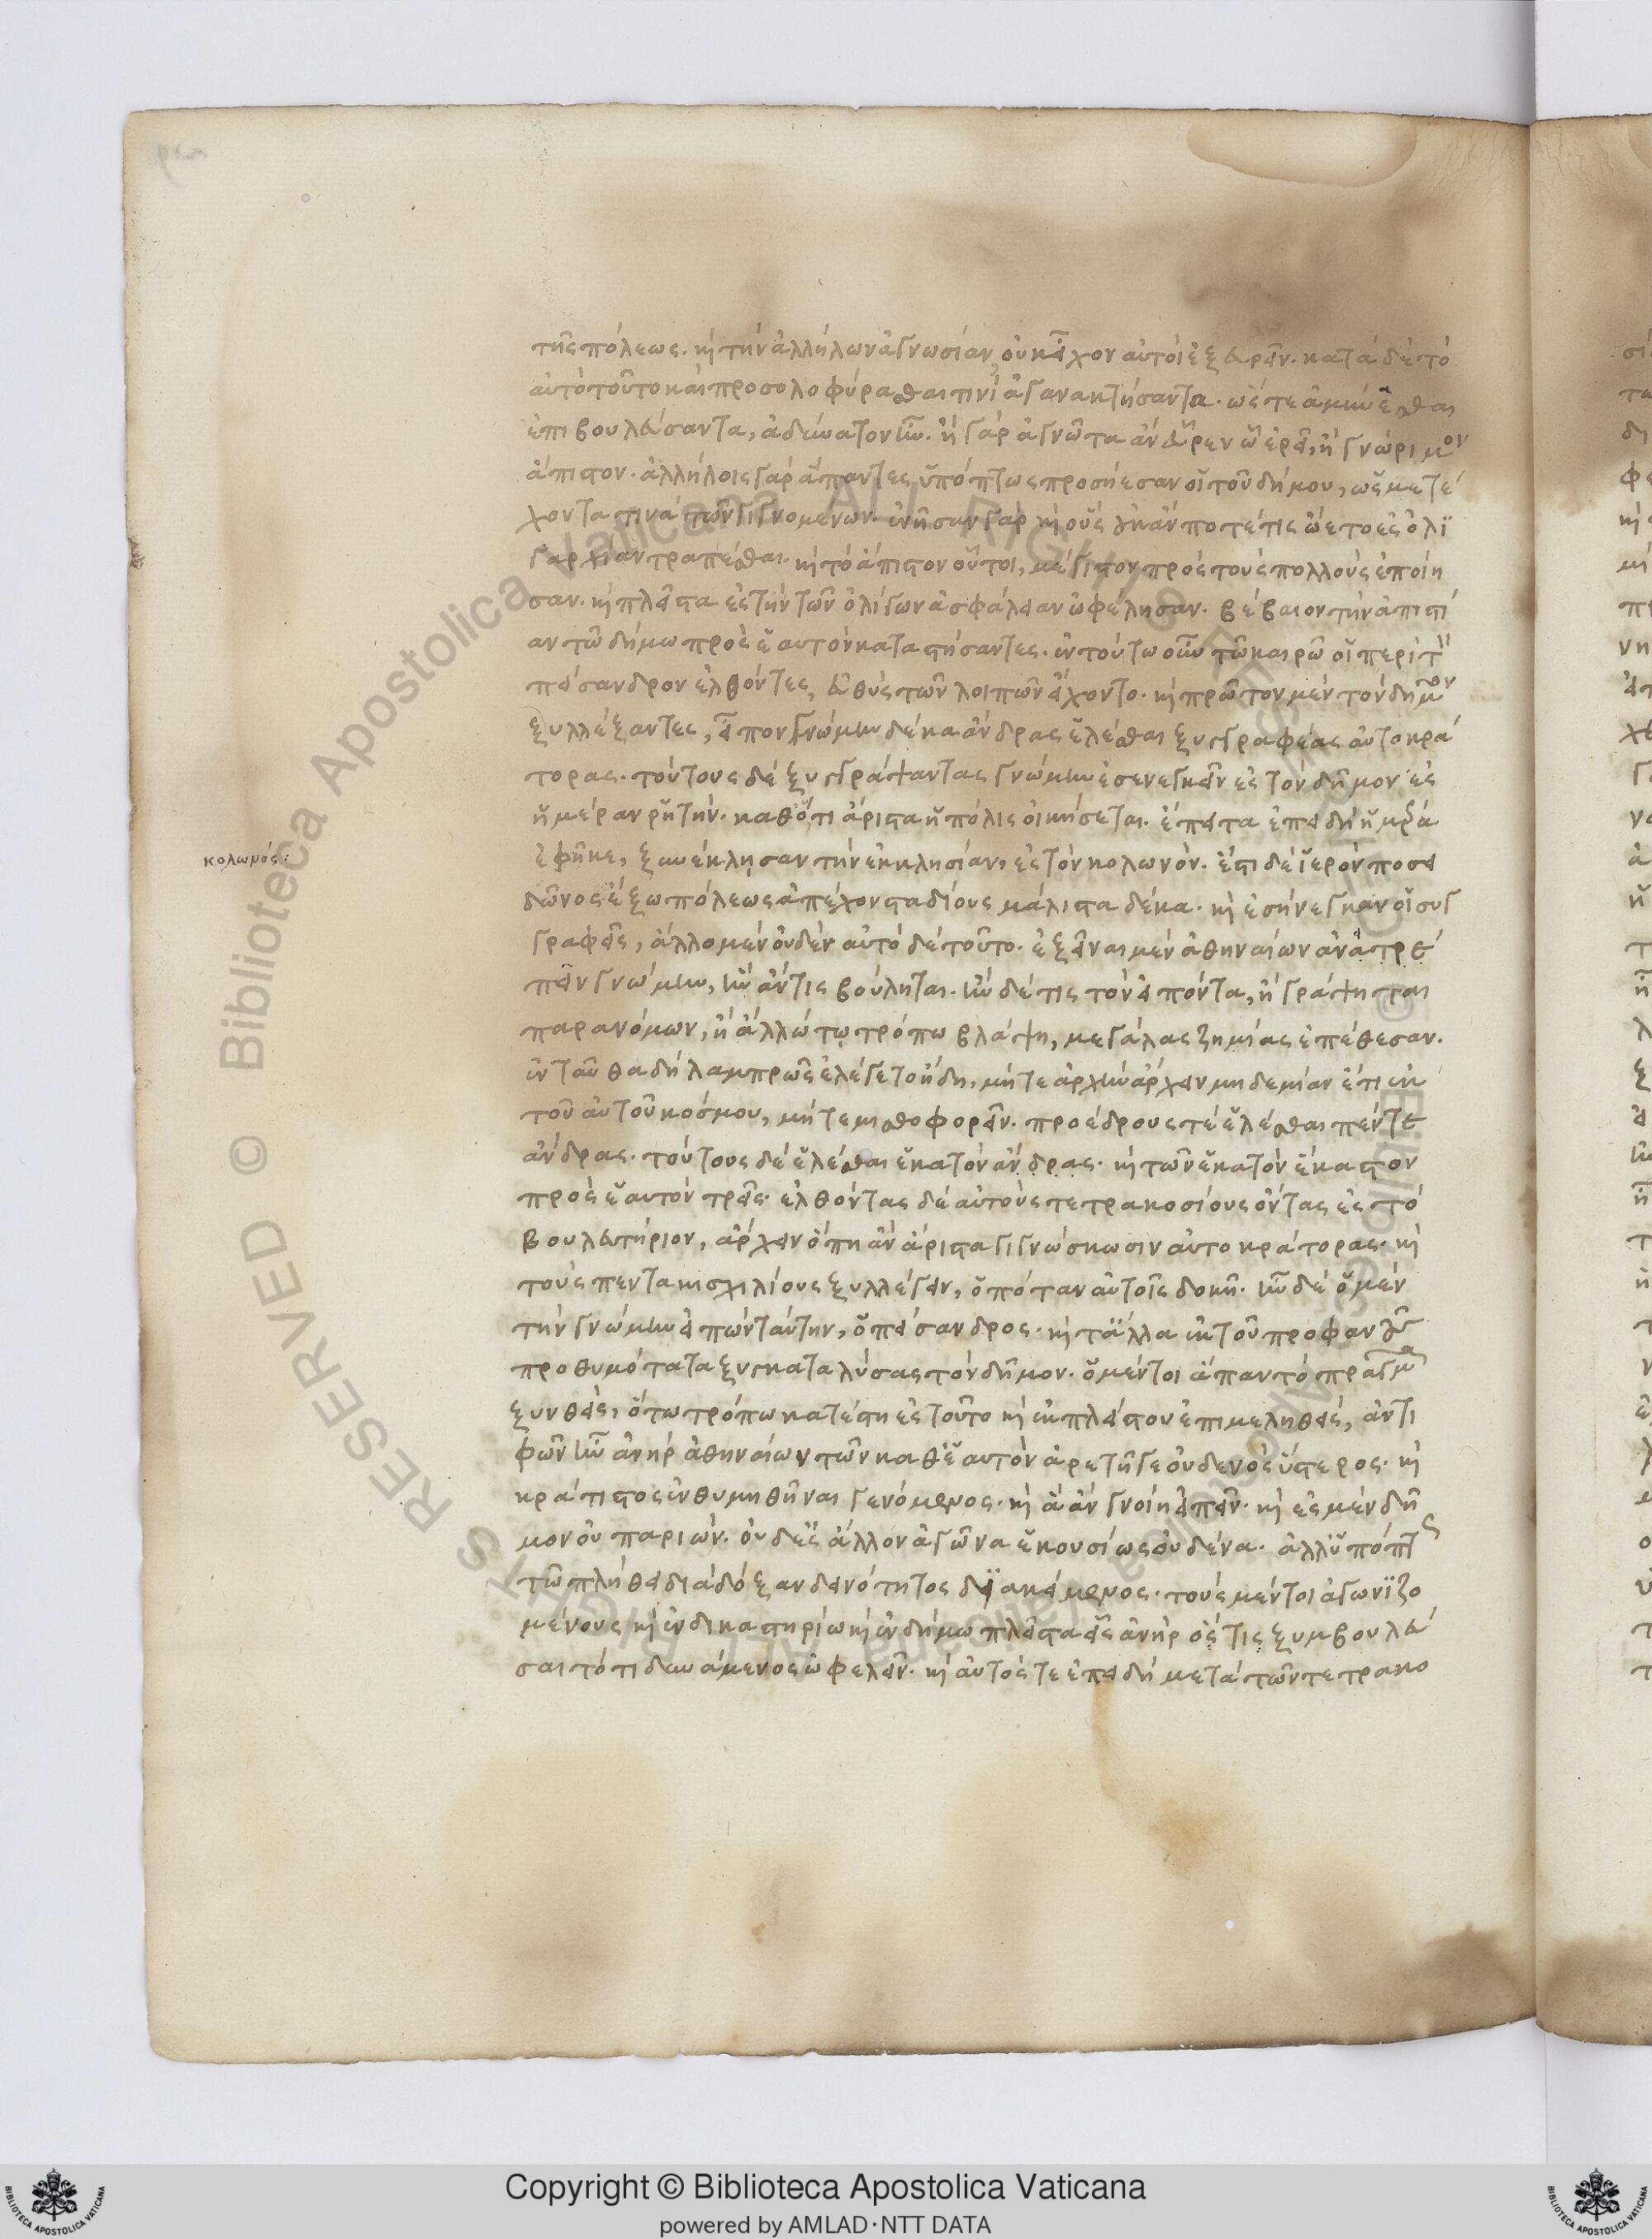 τῆς πόλεως. καὶ τὴν ἀλλήλων ἀγνωσίαν, οὐκ εἶχον αὐτοὶ ἐξευρεῖν. κατὰ δὲ τὸ
αὐτὸ τοῦτο καὶ προσολοφύρασθαι τινὶ ἀγανακτήσαντα. ὥστε ἀμύνεσθαι
ἐπιβουλεύσαντα, ἀδύνατον ἦν. ἢ γὰρ ἀγνῶτα ἂν εὗρεν ᾧ ἐρεῖ, ἢ γνώριμον
ἄπιστον. ἀλλήλοις γὰρ ἅπαντες ὑπόπτως προσήεσαν οἱ τοῦ δήμου, ὡς μετέ
χοντα τινὰ τῶν γιγνομένων. ἐνῆσαν γὰρ καὶ οὓς οὐκ ἄν ποτέ τις ᾤετο ἐς ὀλι
γαρχίαν τραπέσθαι. καὶ τὸ ἄπιστον οὗτοι, μέγιστον πρὸς τοὺς πολλοὺς ἐποίη
σαν. καὶ πλεῖστα ἐς τὴν τῶν ὀλίγων ἀσφάλειαν ὠφέλησαν. βέβαιον τὴν ἀπιστί
αν τῶ δήμω πρὸς ἑαυτὸν καταστήσαντες. ἐν τούτω οὖν τῶ καιρῶ οἱ περὶ τὸν
πείσανδρον ἐλθόντες, εὐθὺς τῶν λοιπῶν εἴχοντο. καὶ πρῶτον μὲν τὸν δῆμον
ξυλλέξαντες, εἶπον γνώμην δέκα ἄνδρας ἑλέσθαι ξυγγραφέας αὐτοκρά
τορας. τούτους δὲ ξυγγράψαντας γνώμην ἐσενεγκεῖν ἐς τὸν δῆμον ἐς
ἡμέραν ῥητήν. καθότι ἄριστα ἡ πόλις οἰκήσεται. ἔπειτα ἐπειδὴ ἡ ἡμέρα
κολωνός:
ἐφῆκε, ξυνέκλησαν τὴν ἐκκλησίαν, ἐς τὸν κολωνόν. ἔστι δὲ ἱερὸν ποσει
δῶνος ἔξω πόλεως ἀπέχον σταδίους μάλιστα δέκα. καὶ ἐσήνεγκαν οἱ συγ
γραφεῖς, ἄλλο μὲν οὐδὲν αὐτὸ δὲ τοῦτο. ἐξεῖναι μὲν ἀθηναίων ἀνατρέ
πειν γνώμην, ἣν ἄν τις βούληται. ἢν δέ τις τὸν εἰπόντα, ἢ γράψηται
παρανόμων, ἢ ἄλλω τω τρόπω βλάψη, μεγάλας ζημίας ἐπέθεσαν.
ἐνταῦθα δὴ λαμπρῶς ἐλέγετο ἤδη, μήτε ἀρχὴν ἄρχειν μηδεμίαν ἔτι ἐκ
τοῦ αὐτοῦ κόσμου, μήτε μισθοφορεῖν. προέδρους τὲ ἑλέσθαι πέντε
ἄνδρας. τούτους δὲ ἑλέσθαι ἑκατὸν ἄνδρας. καὶ τῶν ἑκατὸν ἕκαστον
πρὸς ἑαυτὸν τρεῖς. ἐλθόντας δὲ αὐτοὺς τετρακοσίους ὄντας ἐς τὸ
βουλευτήριον, ἄρχειν ὅπη ἂν ἄριστα γιγνώσκωσιν αὐτοκράτορας. καὶ
τοὺς πεντακισχιλίους ξυλλέγειν, ὁπόταν αὐτοῖς δοκῆ. ἦν δὲ ὁ μὲν
τὴν γνώμην εἰπὼν ταύτην, ὁ πείσανδρος. καὶ τἄλλα ἐκ τοῦ προφανοῦς
προθυμότατα ξυγκαταλύσας τὸν δῆμον. ὁ μέντοι ἅπαν τὸ πρᾶγμα
ξυνθείς, ὅτω τρόπω κατέστη ἐς τοῦτο καὶ ἐκ πλείστου ἐπιμεληθείς, ἀντι
φῶν ἦν ἀνὴρ ἀθηναίων τῶν καθ' ἑαυτὸν ἀρετῆ γε οὐδενὸς ὕστερος. καὶ
κράτιστος ἐνθυμηθῆναι γενόμενος. καὶ ἃ ἂν γνοίη εἰπεῖν. καὶ ἐς μὲν δῆ
μον οὐ παριών. οὐδ' εἰς ἄλλον ἀγῶνα ἑκουσίως οὐδένα. ἀλλ' ὑπόπτως
τῶ πλήθει διὰ δόξαν δεινότητος διακείμενος. τοὺς μέντοι ἀγωνιζο
μένους καὶ ἐν δικαστηρίω καὶ ἐν δήμω πλεῖστα εἷς ἀνὴρ ὅστις ξυμβουλεύ
σαιτό τι δυνάμενος ὠφελεῖν. καὶ αὐτός τε ἐπειδὴ μετὰ τῶν τετρακο
Copyright © Biblioteca Apostolica Vaticana
powered by AMLAD·NTT DATA